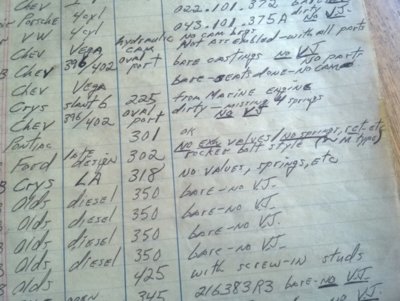 Chev 022.101.372
Porsche 4cyl 043.101.375A NO V.J.
VW 4cyl hydraulic cam no cam brgs
Chev Vega Not assembled-with all parts
Chev 396/402 oval port bare castings NO V.J.
Chev Vega bare-seats done-no cam
Crys slant 6 225 from Marine engine
Chev 396/402 oval port dirty-missing 4 springs NO V.J.
Pontiac 301 OK
Ford late design 302 No Exh valves/No springs, ret-etc rocker bolt style
Crys LA 318 no valves, springs, etc
Olds diesel 350 bare-no V.J.
Olds diesel 350 bare-no V.J.
Olds diesel 350 bare-no V.J.
Olds diesel 350 bare-no V.J.
Olds 425 with screw-in studs
345 216383R3 bare-no V.J.